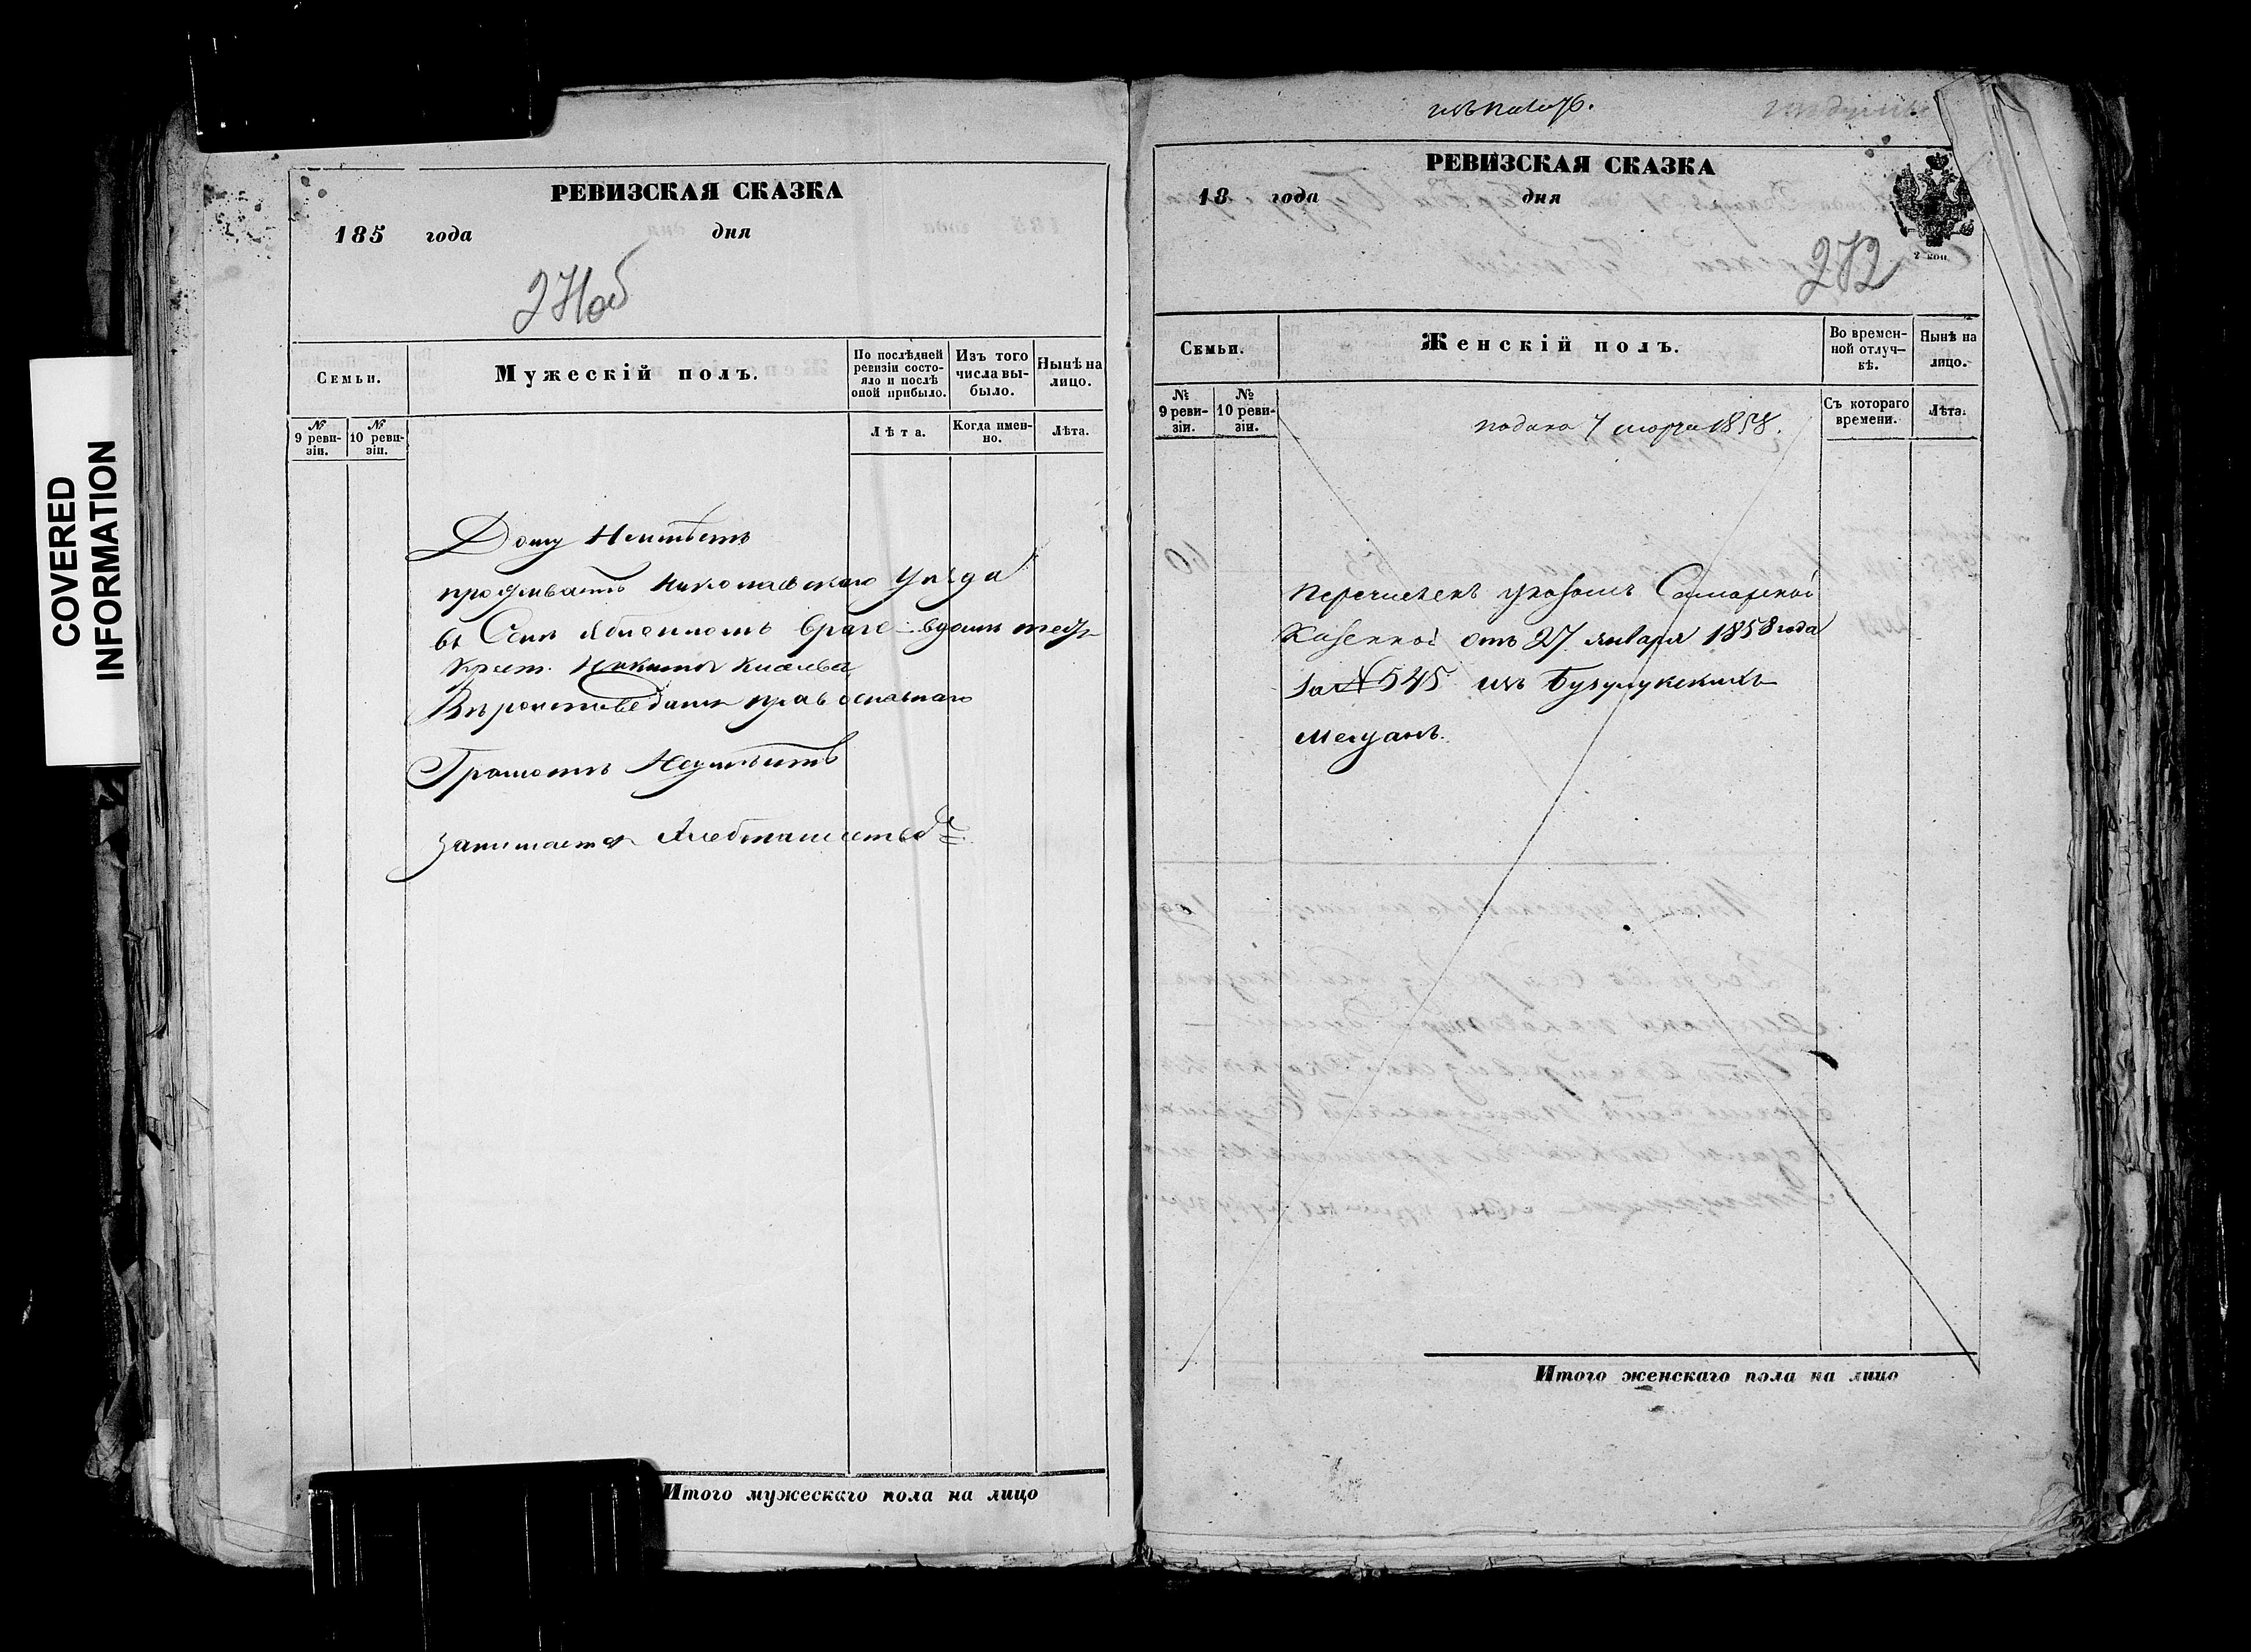 COVERED
INFORMATION
РЕВИЗСКАЯ СКАЗКА
185 года дня
271об
Семьи.
Мужескій полъ.
По послѣдней ревизіи состояло и послѣ оной прибыло.
Изъ того числа выбыло.
Нынѣ на лицо.
№ 9 ревизіи.
№ 10 ревизіи.
Лѣта.
Когда именно.
Лѣта.
Дому Неимѣетъ
проживаетъ Николаевскаго уѣзда
въ Селѣ Яблонномъ врагѣ вдомѣ
крест. Никиты
Вѣроисповеданія православнаго
Грамотѣ Неумѣетъ
занимается Хлебопашествомъ
Итого мужескаго пола на лицо
РЕВИЗСКАЯ СКАЗКА
18 года дня
2 коп.
272
Семьи.
Женскій полъ.
Во временной отлучкѣ.
Нынѣ на лицо.
№ 9 ревизіи.
№ 10 ревизіи.
Съ котораго времени.
Лѣта.
подана 7 марта 1858.
перечисленъ указомъ Самарской
Казенной отъ 27 января 1858 года
за № 545 изъ Бузулукскихъ
мещанъ.
Итого женскаго пола на лицо